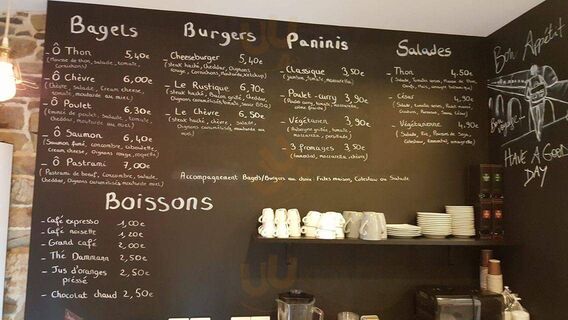 Bagels
Ô Thon 5,40€
(Mousse de thon, salade, tomate,
- Ô Chèvre 6,00€
(Chèvre, salade, Cream cheese,
tomate, moutarde au miel)
- Ô Poulet 6,30€
de poulet, salade, tomate,
Cheddar, moutarde au miel)
- Ô Saumon 6,40€
(Saumon fumé, concombre, ciboulette,
Cream cheese, oignons rouges, roquette)
- Ô Pastrami 7,00€
(Pastrami de boeuf, concombre, salade,
Cheddar, Oignons caramélisés, moutarde miel)
Burgers
Cheeseburger 5,40€
(steak haché, cheddar, Oignons
rouges, cornichons, moutarde, ketchup)
- Le Rustique 6,70€
(steak haché, Bacon grillé, cheddar,
Oignons caramélisés, tomate, sauce BBQ)
- Le Chèvre 6,50€
(steak haché, chèvre, tomate,
Oignons caramélisés, moutarde au
miel)
Paninis
- Classique 3,50€
(Jambon, tomate, mozzarella)
- Poulet-curry 3,90€
(Poulet curry, tomate,
mozzarella, crème)
- Végétarien 3,90€
(Aubergine grillée, tomate,
mozzarella, pesto)
- 3 fromages 3,50€
(Emmental, mozzarella, chèvre)
Salades
- Thon 4,50€
(Salade, tomate, Thon, Maïs,
- César 4,90€
(Salade, tomate, Poulet,
Parmesan, Sauce César)
- Végétarienne 4,90€
(Salade, Riz, Poivron,
Coleslaw, Emmental,
Accompagnement Bagels/Burgers au choix: Frites maison, Coleslaw ou Salade
Boissons
- Café expresso 1,00€
- Café noisette 1,20€
- Grand café 2,00€
- Thé Dammann 2,50€
- Jus d'oranges 2,50€
pressé
- Chocolat chaud 2,50€
Bon Appétit
HAVE A GOOD
DAY